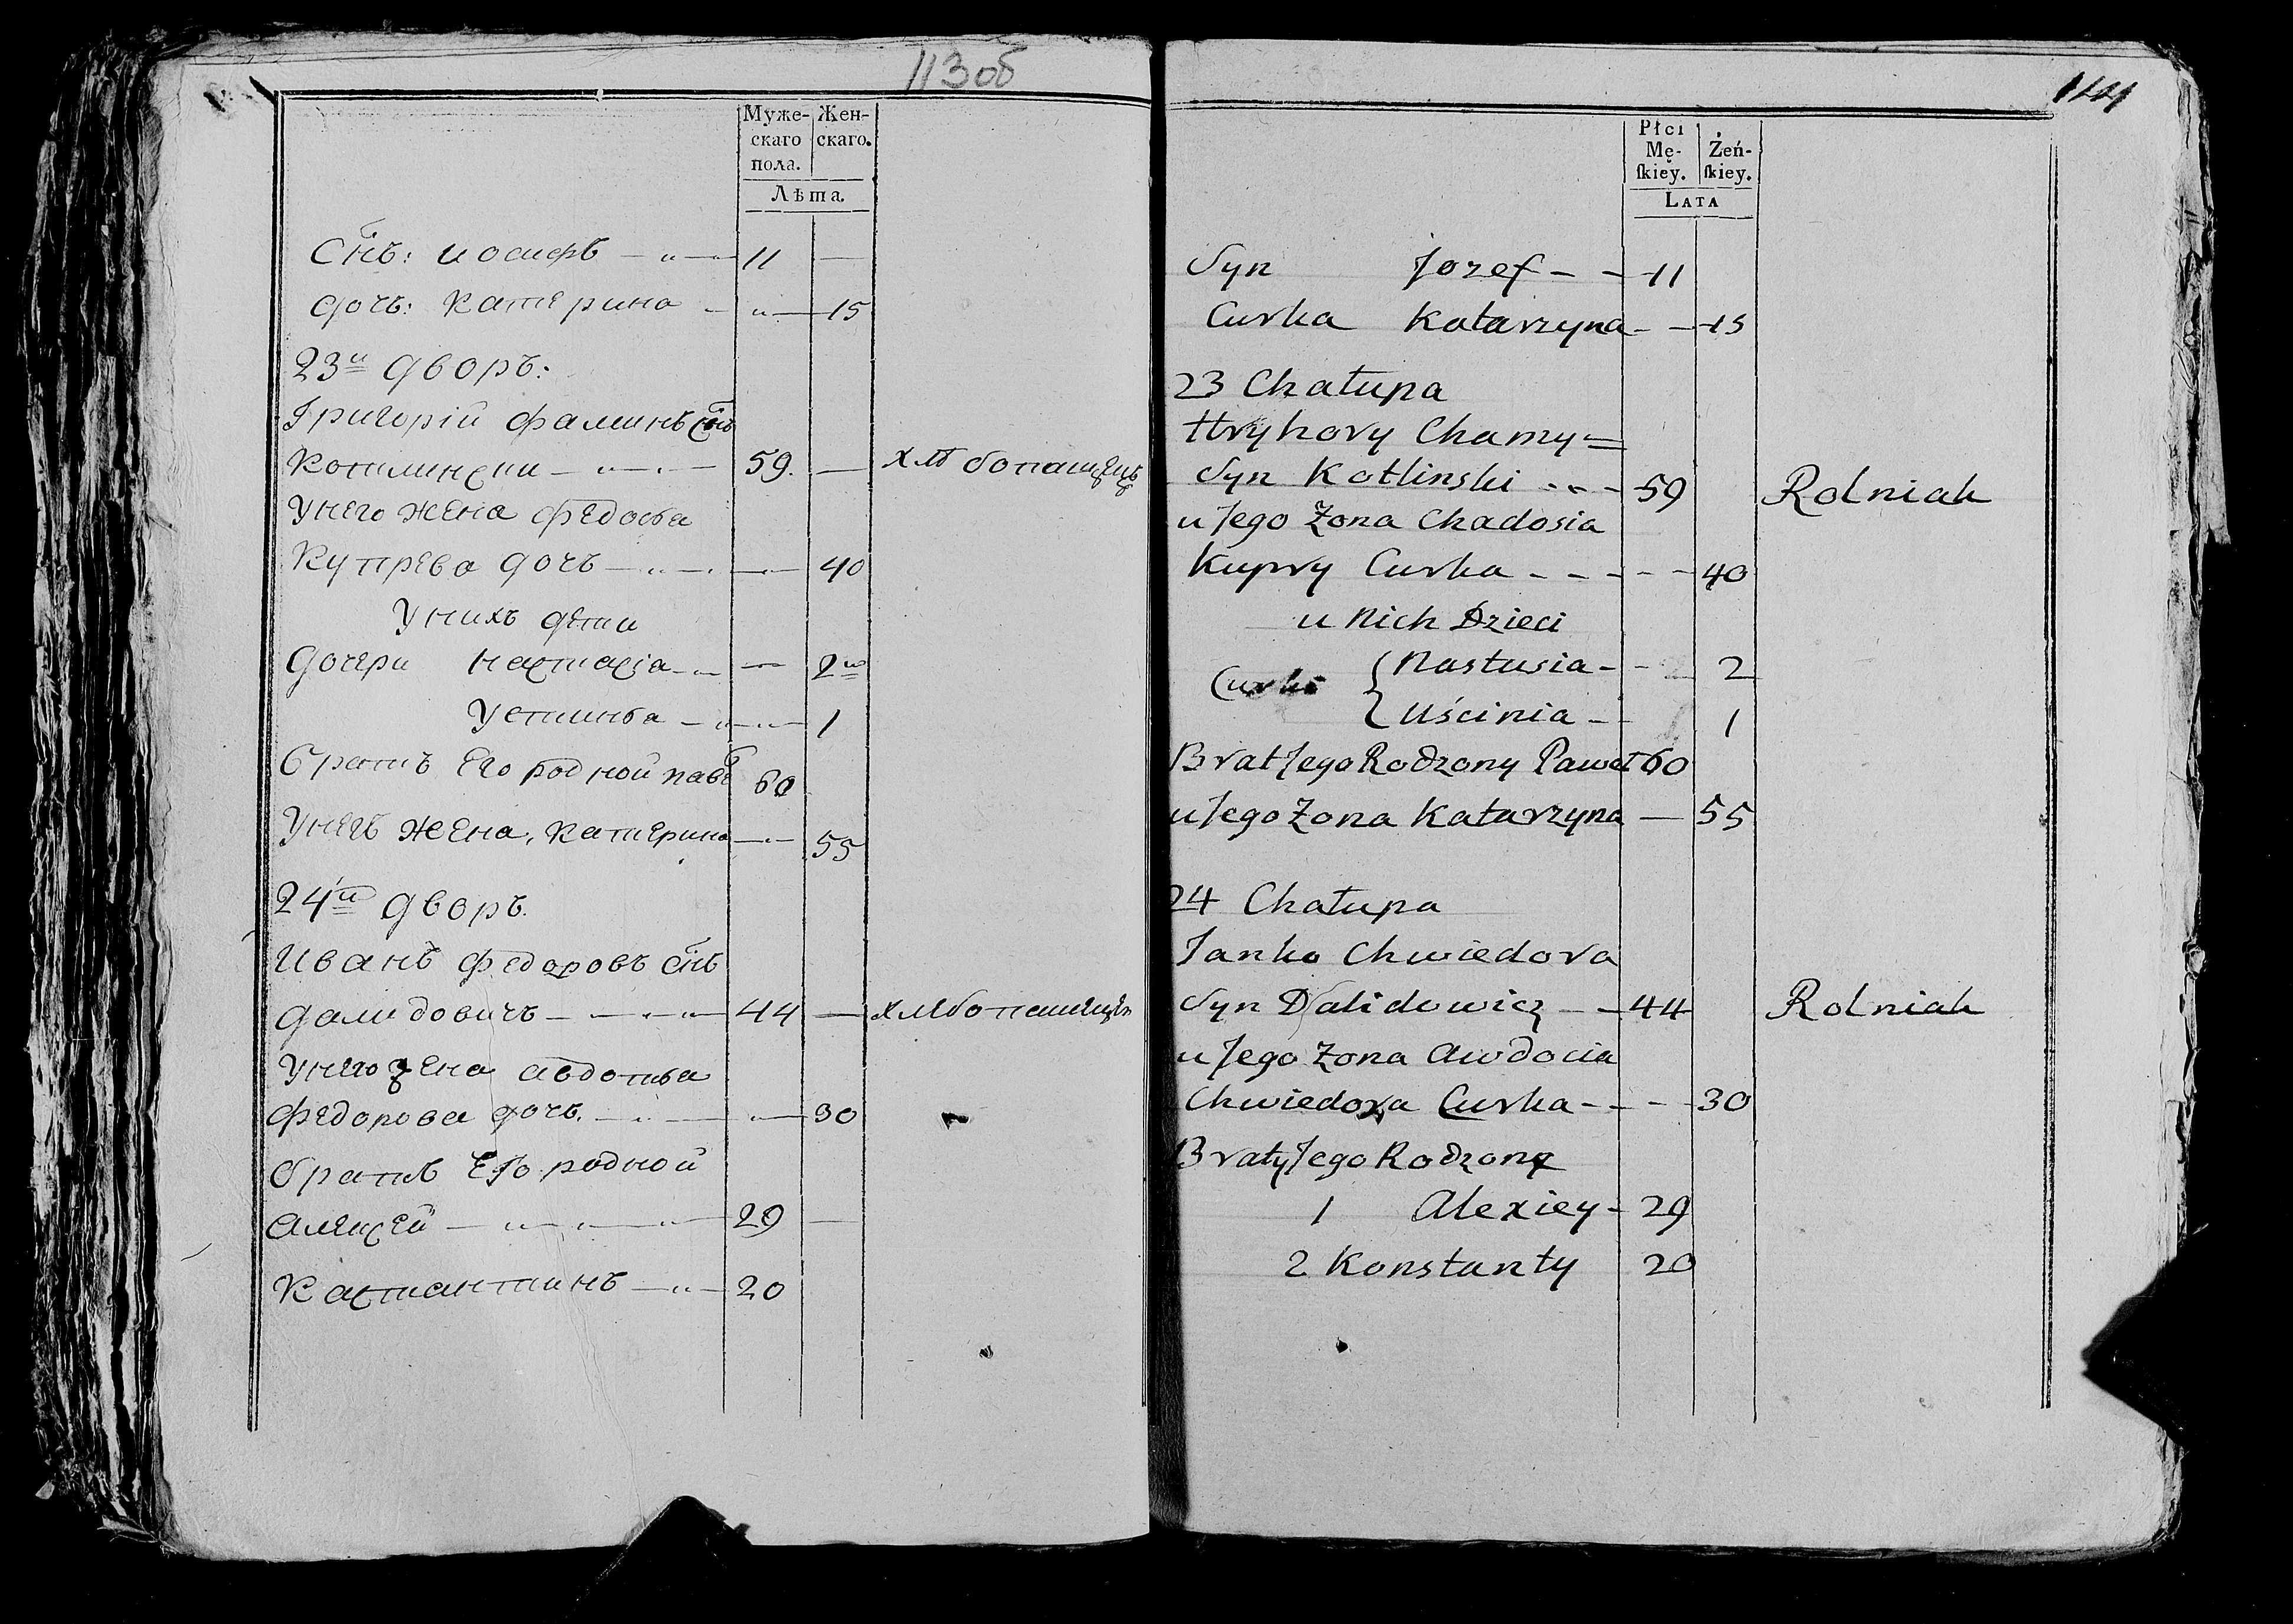 113об
Муже- Жен-
скаго скаго.
пола.
Лѣта.
Снъ: иосифъ 11 —
дочь: Катерина — 15
23й дворъ:
Григорій фаминъ снъ
Котлински 59. — хлѣбопашецъ
Унего жена федосья
Купрева дочь — 40
Унихъ дети
Дочери Настасіа — 2
Устинья — 1
братъ Его родной паве 60
Унегъ жена, Катерина — 55
24й дворъ.
Иванъ федоровъ снъ
далидовичъ 44 — хлѣбопашецъ
Унего жена авдотья
федорова дочь. — 30
братъ Его родной
алексей 29 —
Кастантинъ 20
114
Płci Żeń-
Mę- ſkiey.
ſkiey.
LATA
Syn Jozef 11
Curka Katarzyna 15
23 Chałupa
Hryhory Chamy=
Syn Kotlinski 59 Rolniak
u Jego Żona Chadosia
Kupry Curka 40
u Nich Dzieci
Curki { Nastusia 2
Uścinia 1
Brat Jego Rodzony Paweł 60
u Jego Żona Katarzyna — 55
24 Chałupa
Janko Chwiedora
Syn Dalidowicz 44 Rolniak
u Jego Żona Awdocia
Chwiedora Curka 30
Braty Jego Rodzone
1 Alexiey 29
2 Konstanty 20